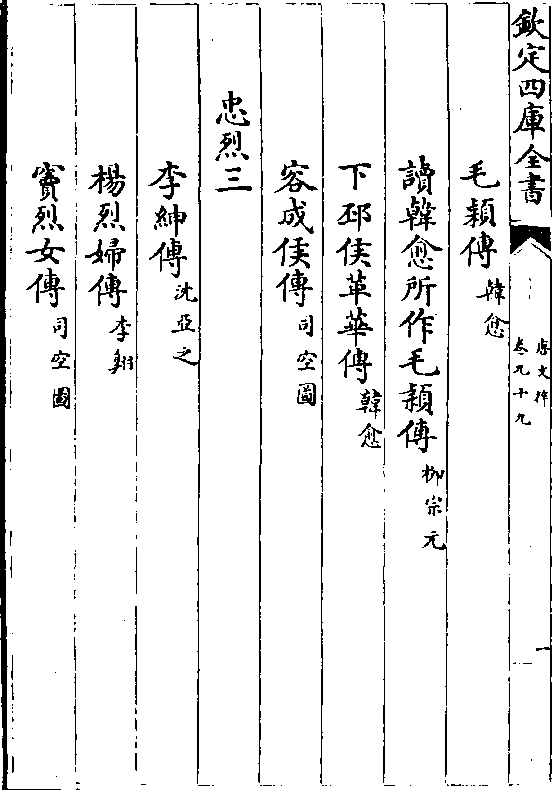 欽定四庫全書
唐文粹
卷九十九
一
毛穎傳 韓愈
讀韓愈所作毛穎傳 柳宗元
下邳侯革華傳 韓愈
容成侯傳 司空圖
忠烈三
李紳傳 沈亞之
楊烈婦傳 李翱
竇烈女傳 司空圖